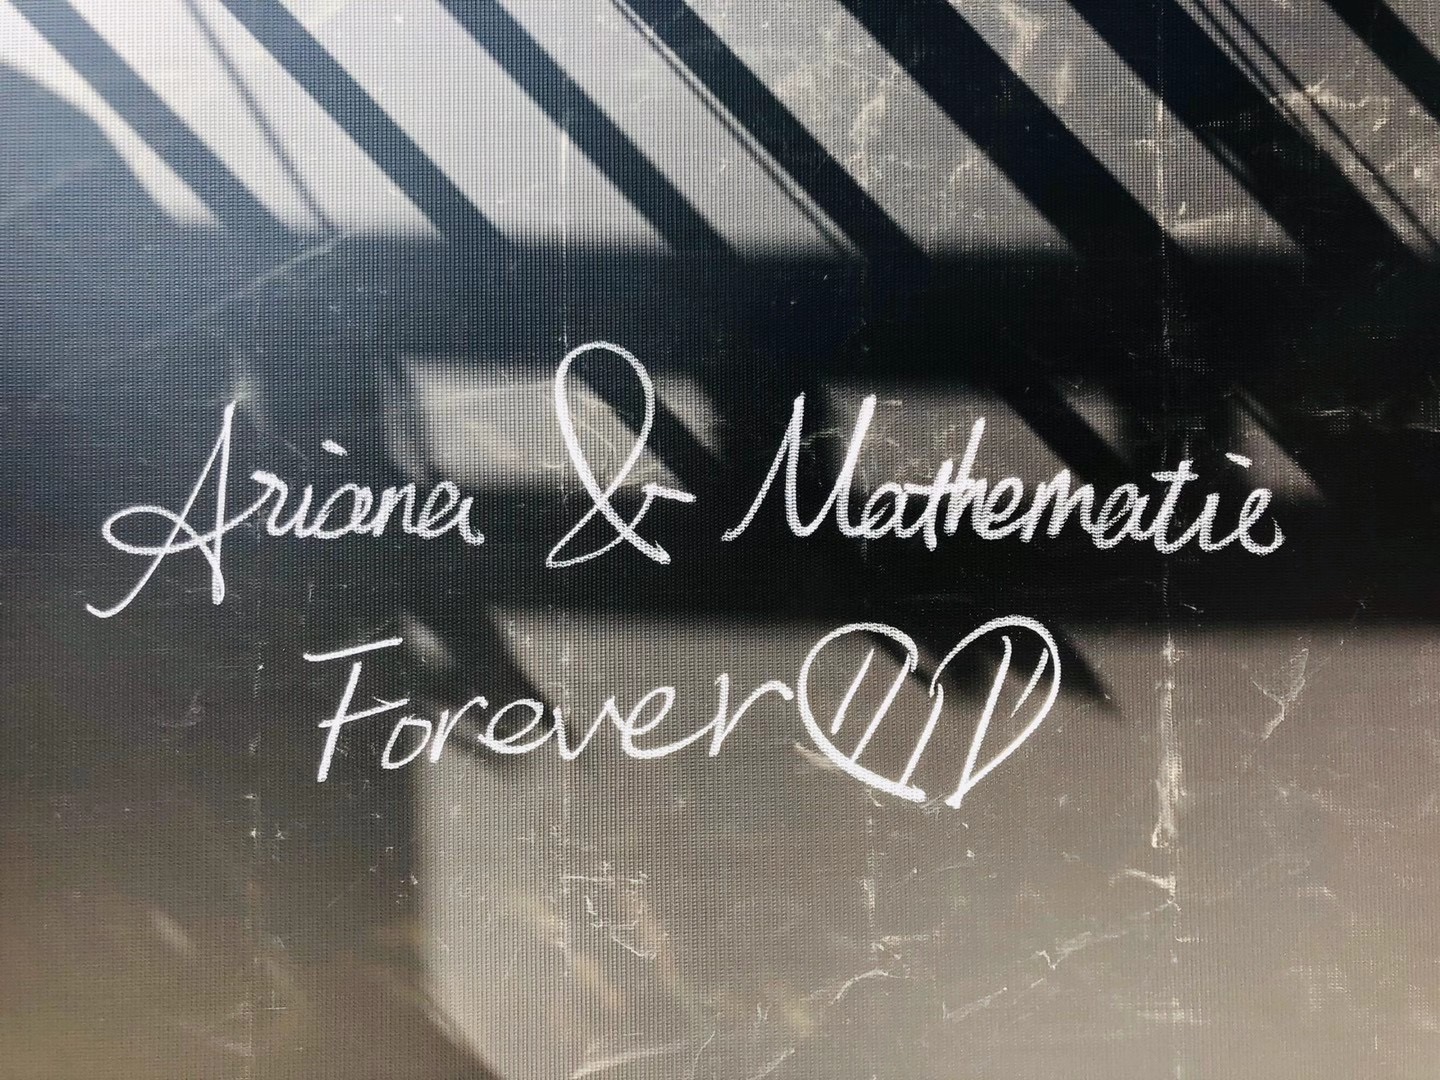 Ariana & Mathematic
Forever